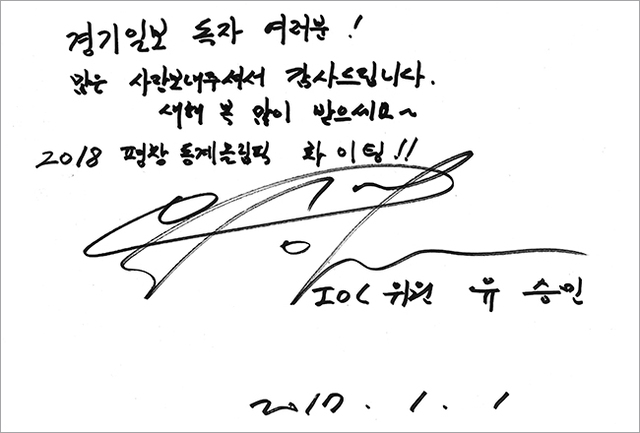 경기일보 독자 여러분!
많은 사랑보내주셔서 감사드립니다.
새해 복 많이 받으세요~
2018 평창동계올림픽 화이팅!!
IOC 위원 유승민
2017. 1. 1